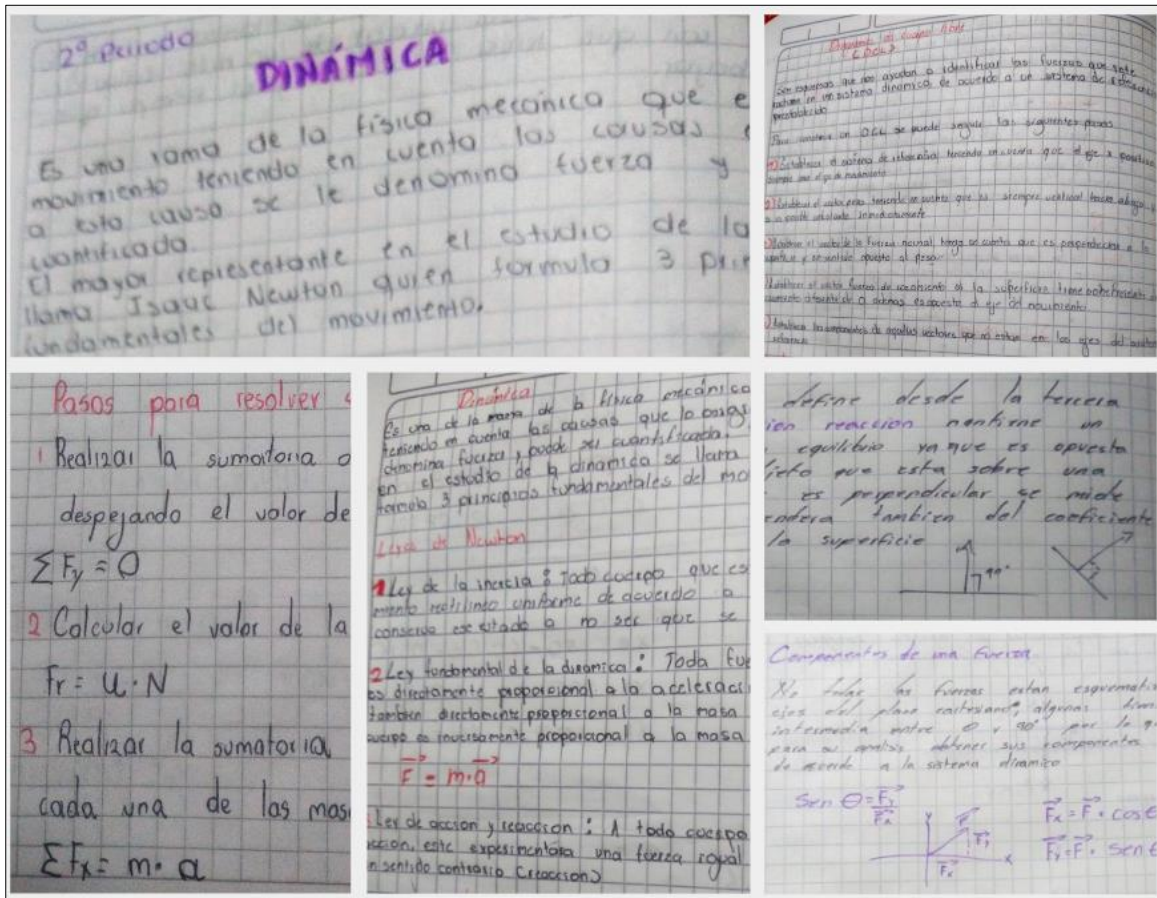 2º Periodo
DINÁMICA
Es una rama de la física mecánica que e
movimiento teniendo en cuenta las causas
a esta causa se le denomina fuerza y
cuantificada.
El mayor representante en el estudio de la
llama Isaac Newton quien formulo 3 prin
fundamentales del movimiento.
(DCL)
Son esquemas que nos ayudan a identificar las fuerzas que
actuan en un sistema dinamico de acuerdo a un sistema de
preestablecido
Para construir un DCL se puede seguir los siguientes pasos
Establecer el sistema de referencia teniendo en cuenta que el eje x positivo
siempre sea el eje de movimiento
teniendo en cuenta que es siempre vertical hacia abajo
la fuerza normal tenga en cuenta que es perpendicular a la
opuesto al peso
fuerza de rozamiento si la superficie tiene
diferente de 0 ademas es opuesto al eje del movimiento
las componentes de aquellos vectores que no estan en los ejes del
Pasos para resolver
1 Realizar la sumatoria
despejando el valor de
ΣFy = 0
2 Calcular el valor de la
Fr = u · N
3 Realizar la sumatoria
cada una de las mas
ΣFx = m · a
Dinámica
Es una de la rama de la física mecánica
teniendo en cuenta las causas que lo
denomina fuerza y puede ser cuantificada.
en el estudio de la dinamica se llama
3 principios fundamentales del mo
Leyes de Newton
1 Ley de la inercia : Todo cuerpo que es
miento rectilineo uniforme de acuerdo a
conserva ese estado a no ser que se
2 Ley fundamental de la dinamica : Toda fue
es directamente proporcional a la acceleraci
tambien directamente proporcional a la masa
cuerpo es inversamente proporcional a la masa
F = m · a
Ley de accion y reaccion : A todo cuerpo
accion, este experimentara una fuerza igual
n sentido contrario (reaccion)
define desde la tercera
ion reaccion mantiene un
equilibrio ya que es opuesta
jeto que esta sobre una
es perpendicular se mide
endera tambien del coeficiente
la superficie
90°
Componentes de una fuerza
No todas las fuerzas estan esquemati
ejes del plano cartesiano, algunas tienen
intermedia entre 0 y 90° por lo q
para su analisis obtener sus componentes
de acuerdo a la sistema dinamico
Sen θ = Fy
Fx
y
F
Fy
Fx
x
Fx = F · cos θ
Fy = F · sen θ